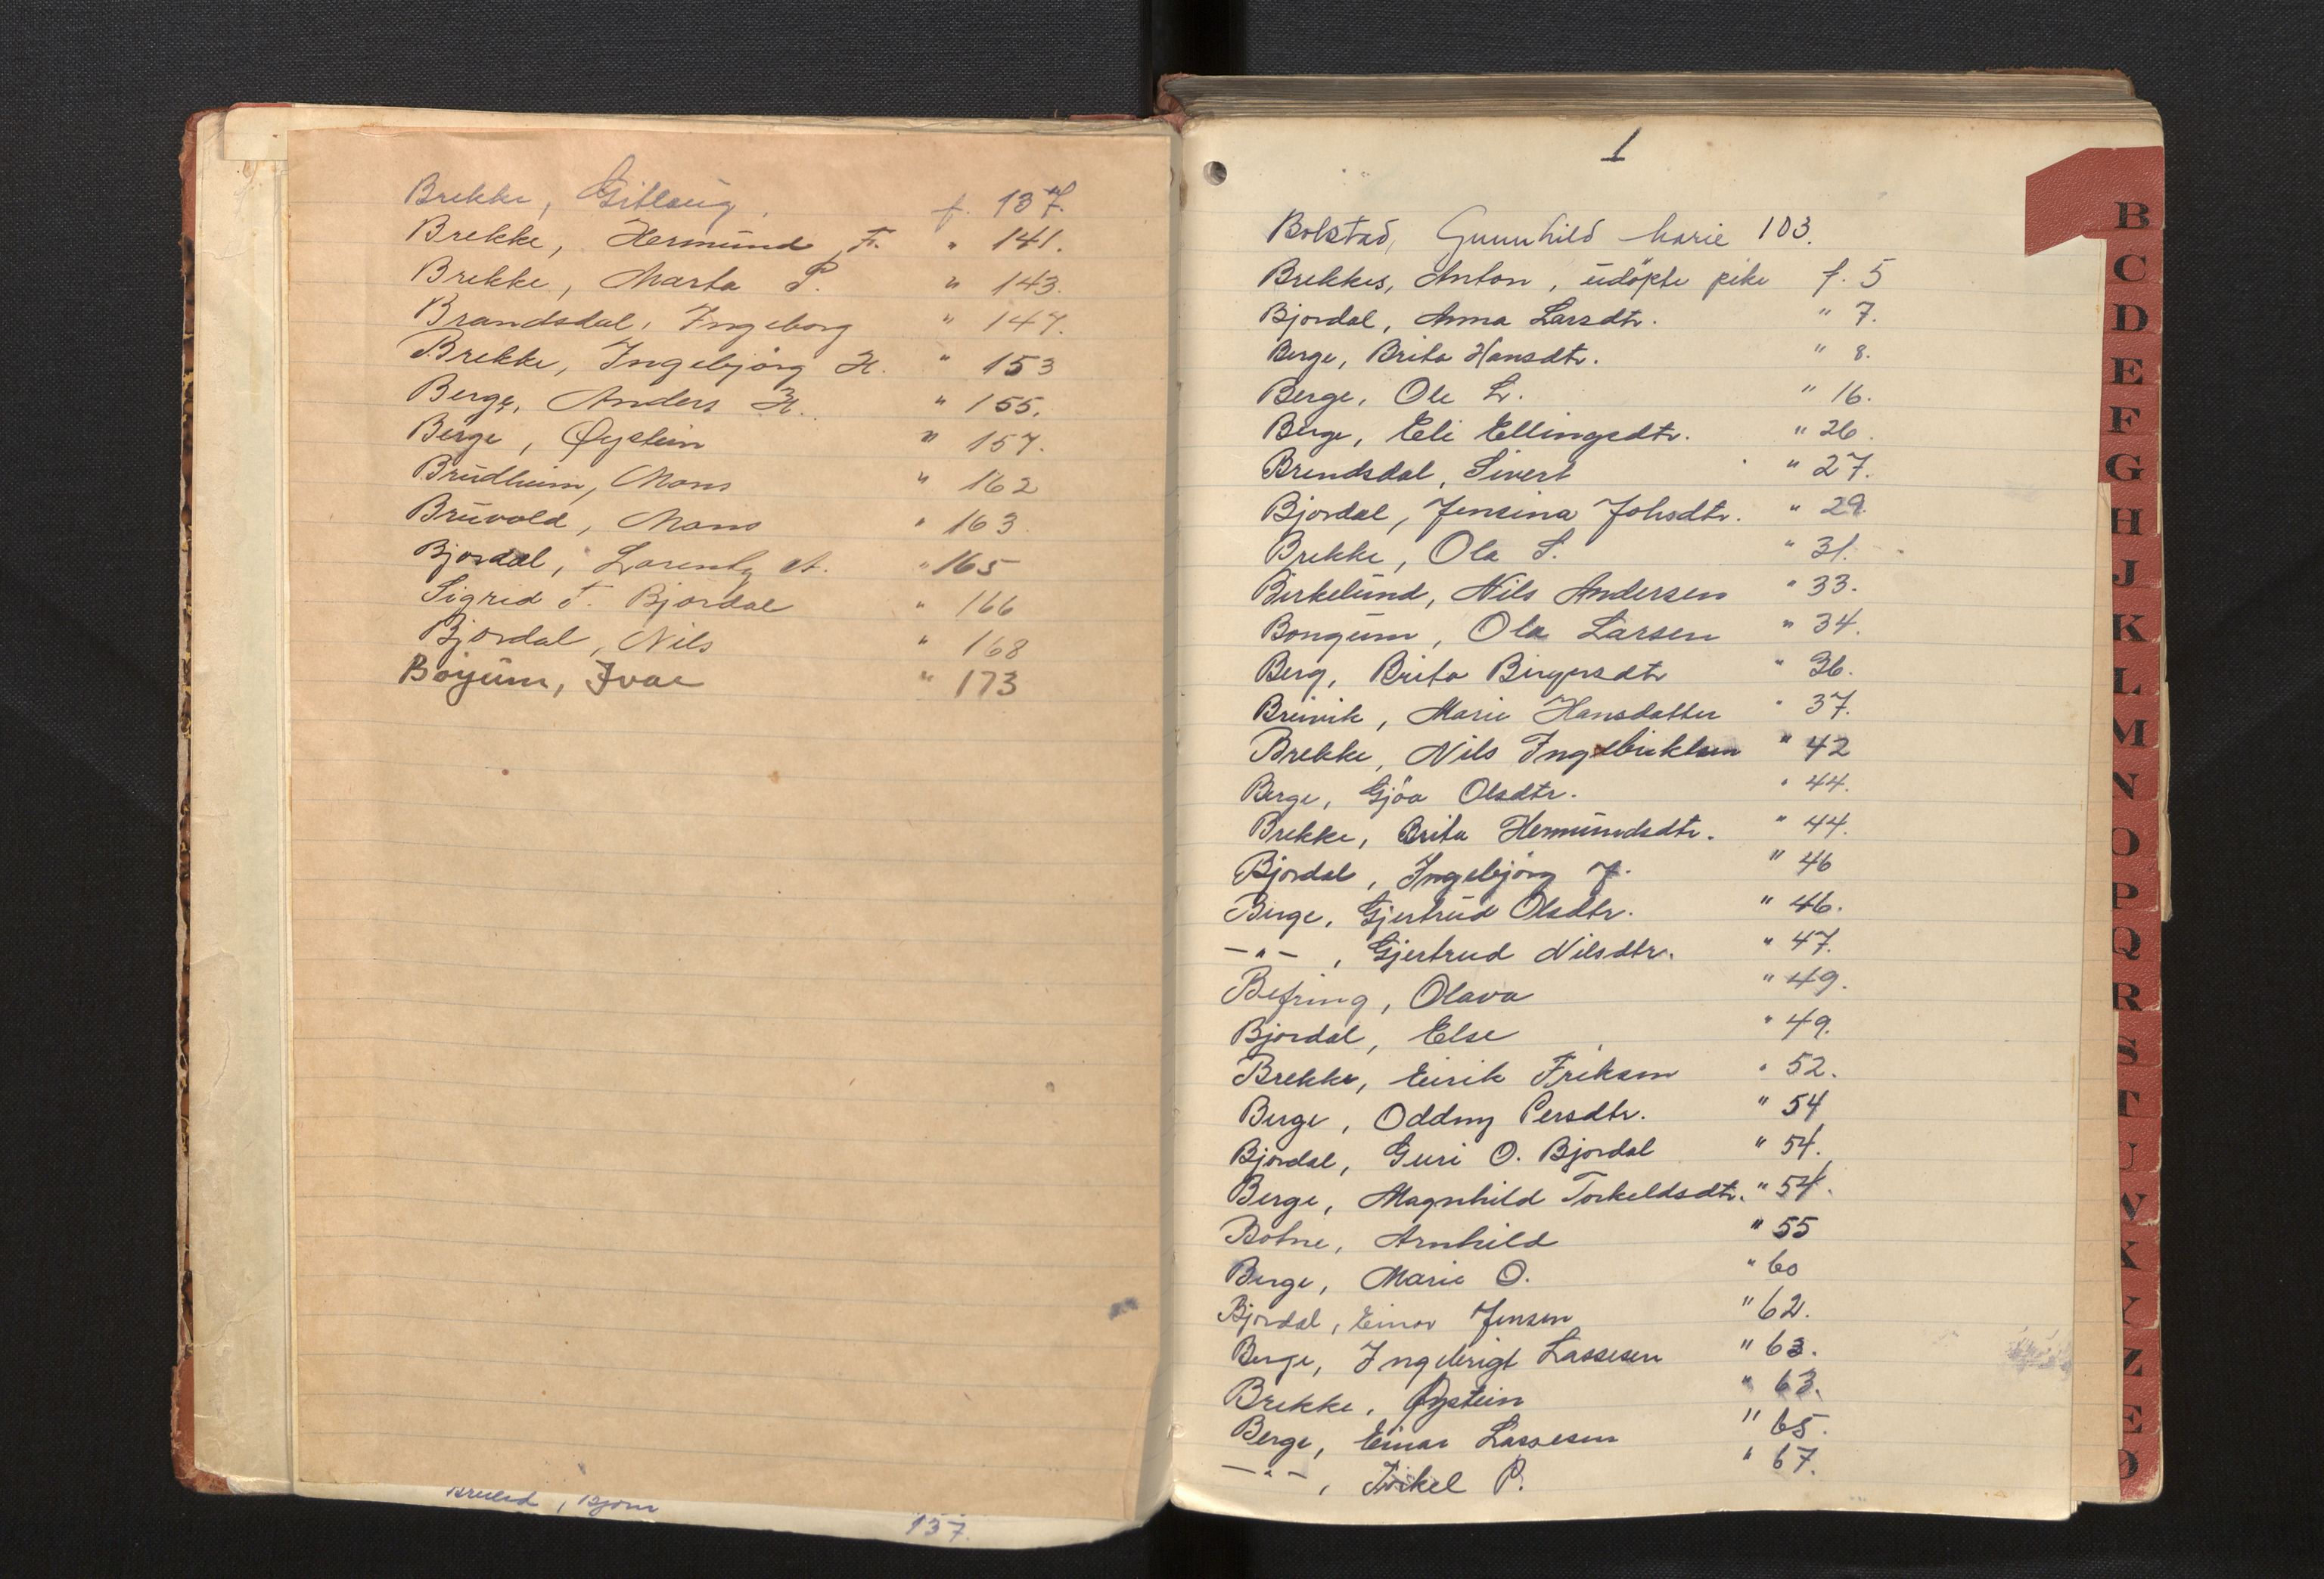 Brekke, Gitlaug f. 137.
Brekke, Hermund Fr. " 141.
Brekke, Marta P. " 143.
Brandsdal, Ingeborg " 147.
Brekke, Ingebjörg H. " 153
Berge, Anders H. " 155.
Berge, Øystein " 157.
Brudheim, Mons " 162
Bruvold, Mons " 163.
Bjordal, Lorents A. " 165
Sigrid T. Bjordal " 166
Bjordal, Nils " 168
Böyum, Ivar " 173
Bjorn
137.
1
Bolstad, Gunnhild Marie 103.
Brekkes, Anton, udöpte pike f. 5
Bjordal, Anna Larsdtr. " 7.
Berge, Brita Hansdtr. " 8.
Berge, Ole L. " 16.
Berge, Eli Ellingsdtr. " 26.
Brendsdal, Sivert " 27.
Bjordal, Jensina Johsdtr. " 29.
Brekke, Ola S. " 31.
Birkelund, Nils Andersen " 33.
Bongum, Ola Larsen " 34.
Berg, Brita Birgersdtr " 36.
Breivik, Marie Hansdatter " 37.
Brekke, Nils Ingebriktsen " 42
Berge, Gjöa Olsdtr. " 44.
Brekke, Brita Hermundsdtr. " 44.
Bjordal, Ingebjörg J. " 46
Berge, Gjertrud Olsdtr. " 46.
— " — , Gjertrud Nilsdtr. " 47.
Befring, Olava " 49.
Bjordal, Else " 49.
Brekke, Eirik Friksen " 52.
Berge, Oddny Persdtr. " 54
Bjordal, Guri O. Bjordal " 54.
Berge, Magnhild Torkeldsdtr. " 54.
Botne, Arnhild " 55
Berge, Marie O. " 60
Bjordal, Einar Jensen " 62.
Berge, Ingebrigt Lassesen " 63.
Brekke, Øystein " 63.
Berge, Einar Lassesen " 65.
— " — , Torkel P. " 67.
B
C
D
E
F
G
H
J
K
L
M
N
O
P
Q
R
S
T
U
V
X
Y
Z
Æ
Ø